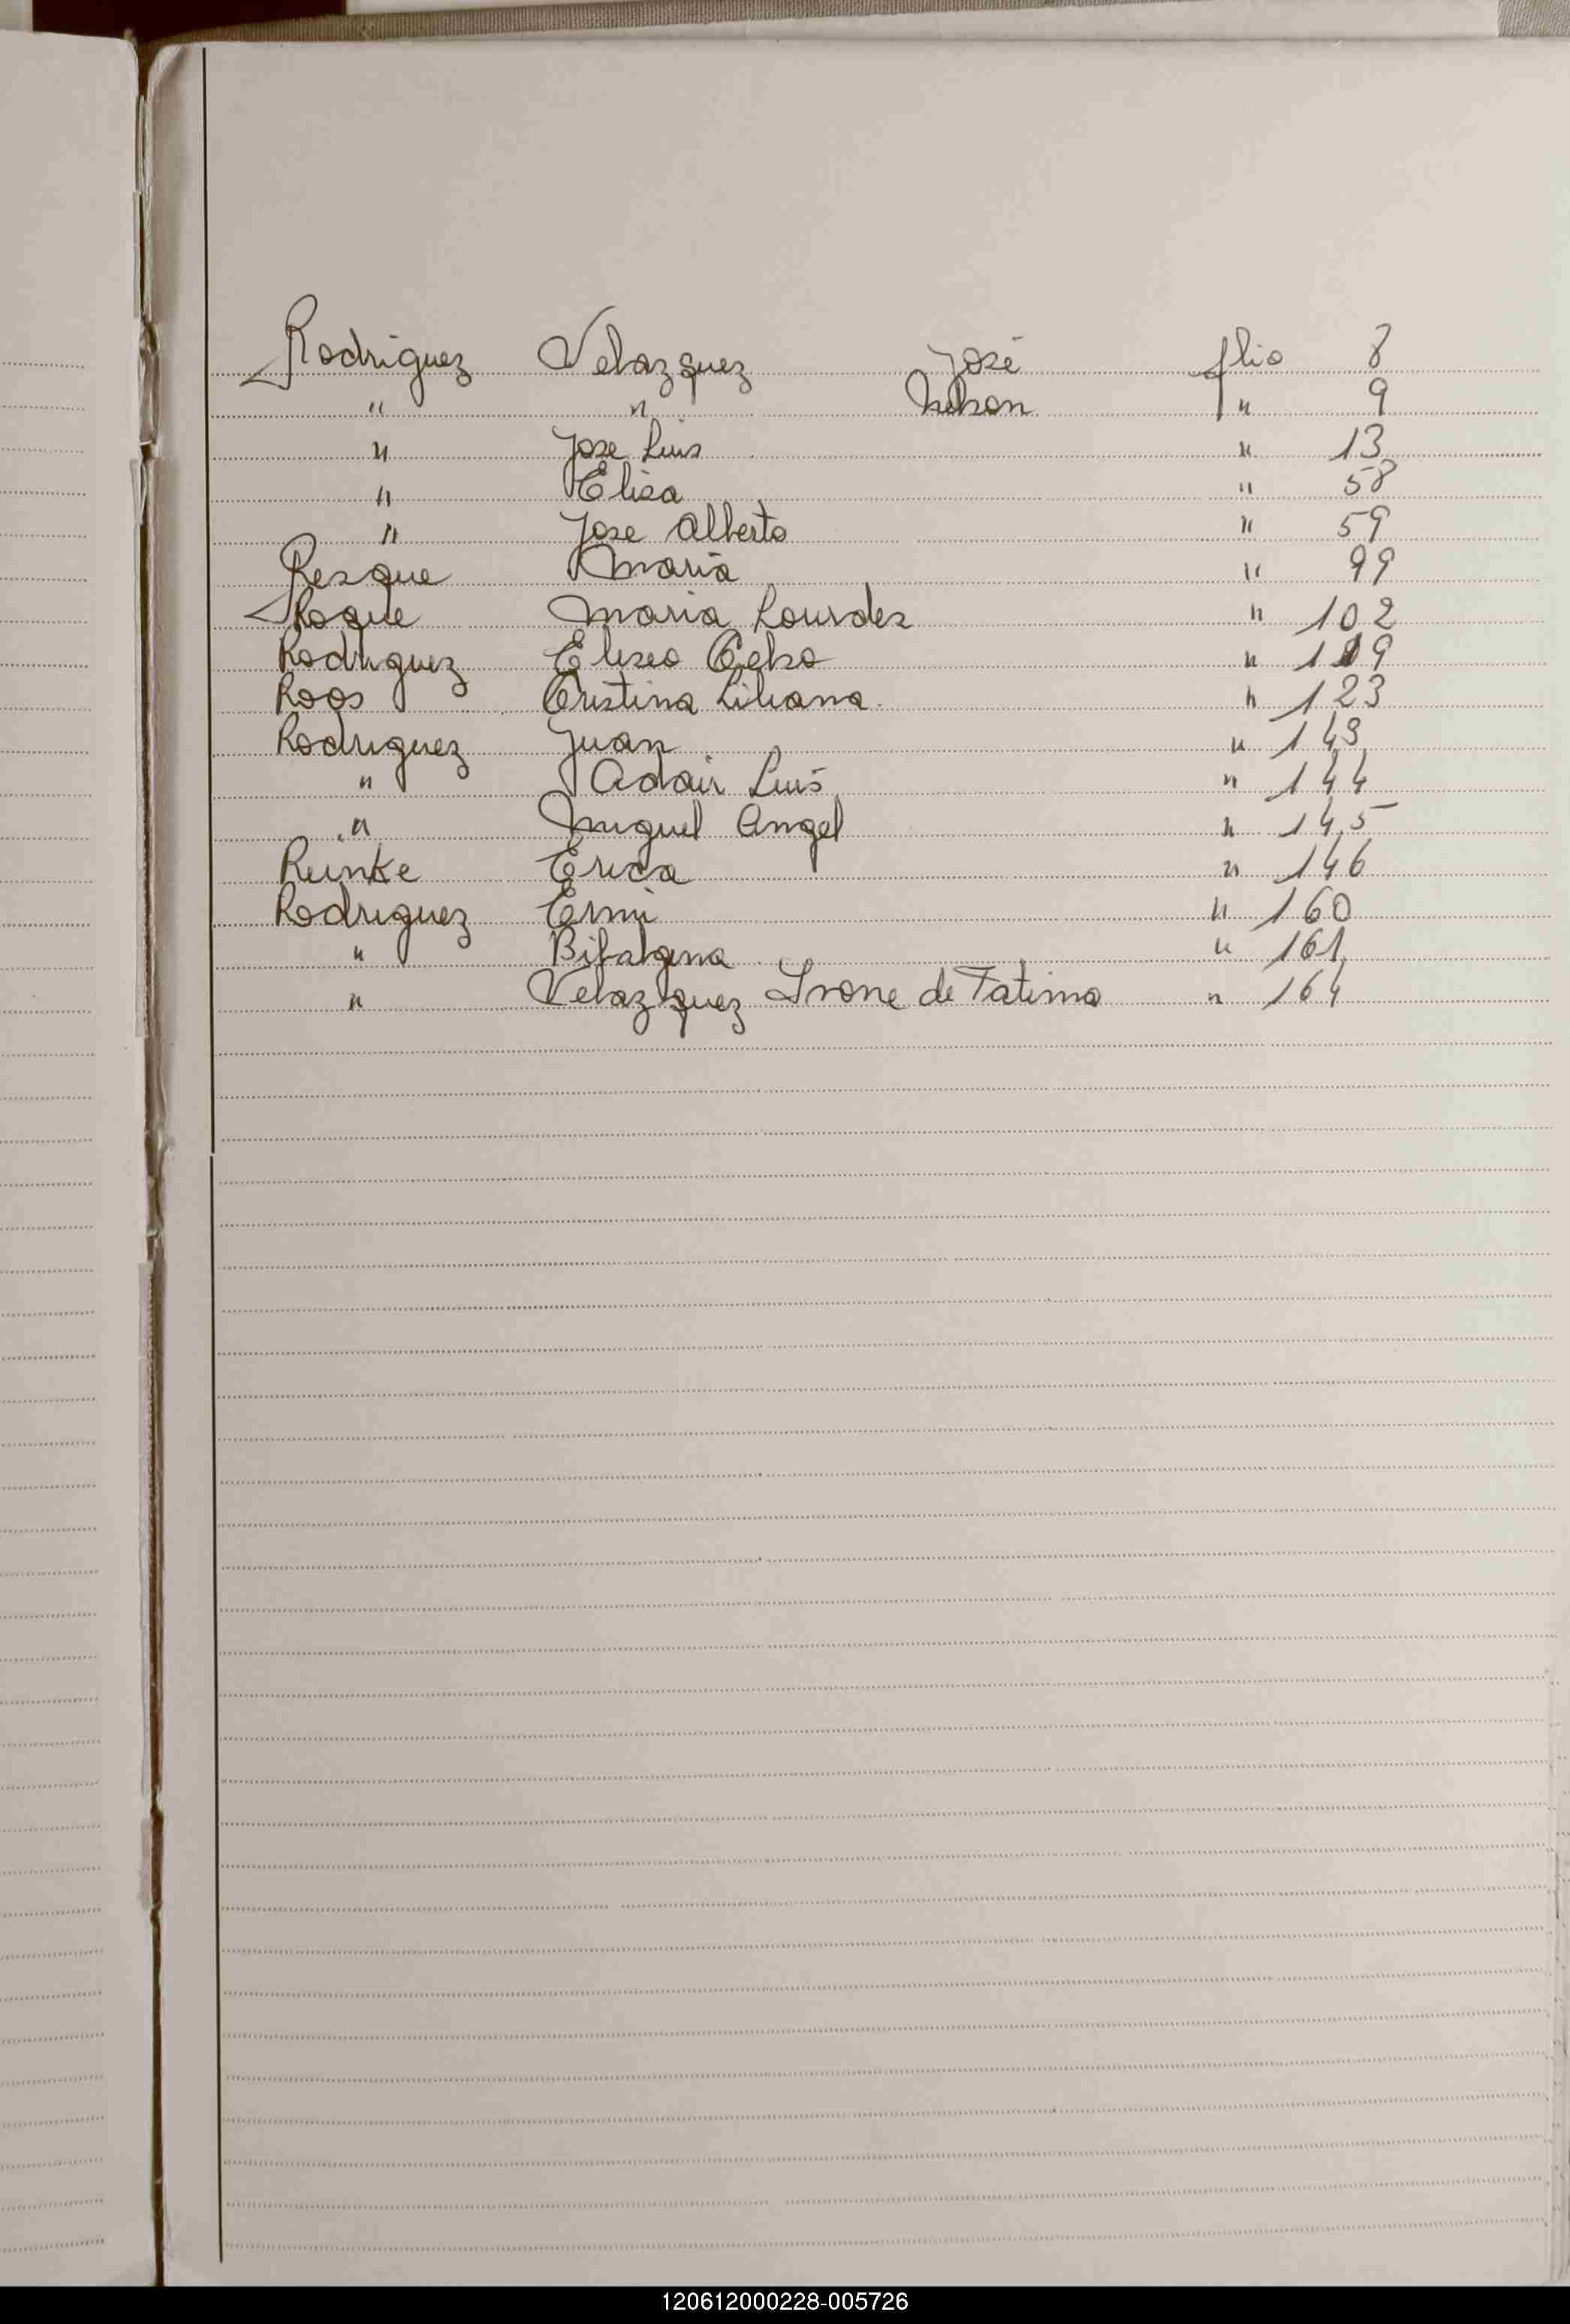 Rodriguez Velazquez José flio 8
" " Nelson " 9
" Jose Luis " 13
" Elisa " 58
" Jose Alberto " 59
Resque Maria " 99
Roque Maria Lourdes " 102
Rodriguez Eliseo Celso " 109
Roos Cristina Liliana " 123
Rodriguez Juan " 143
" Adair Luis " 144
" Miguel Angel " 145
Reinke Erica " 146
Rodriguez Ermi " 160
" " 161
" Velazquez Ivone de Fatima " 164
120612000228-005726